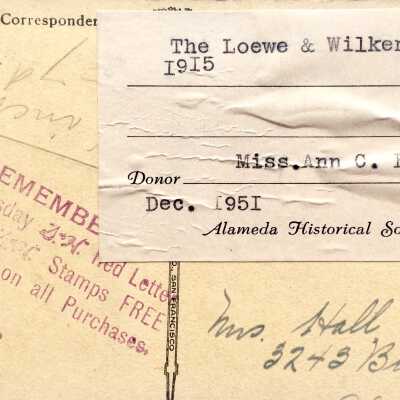 Corresponden
The Loewe & Wilken
1915
Miss. Ann C.
Donor
Dec. 1951
Alameda Historical So
REMEMBE
sday S.&H. Red Lette
Stamps FREE
on all Purchases.
CO., SAN FRANCISCO
Mrs. Hall
3243